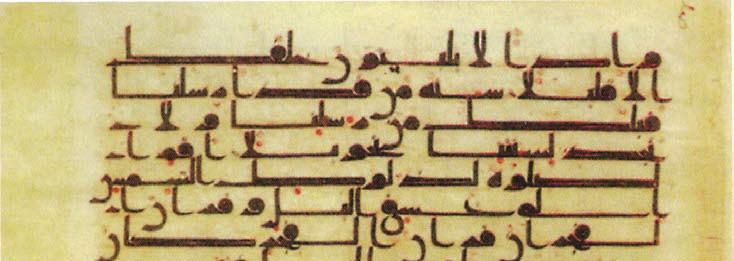 واذا لا يلبثون خلفك
الا قليلا سنة من قد ارسلنا
قبلك من رسلنا ولا تـ
جد لسنتنا تحويلا اقم ا
لصلوة لدلوك الشمس
الى غسق الليل وقران ا
لفجر ان قران الفجر كان